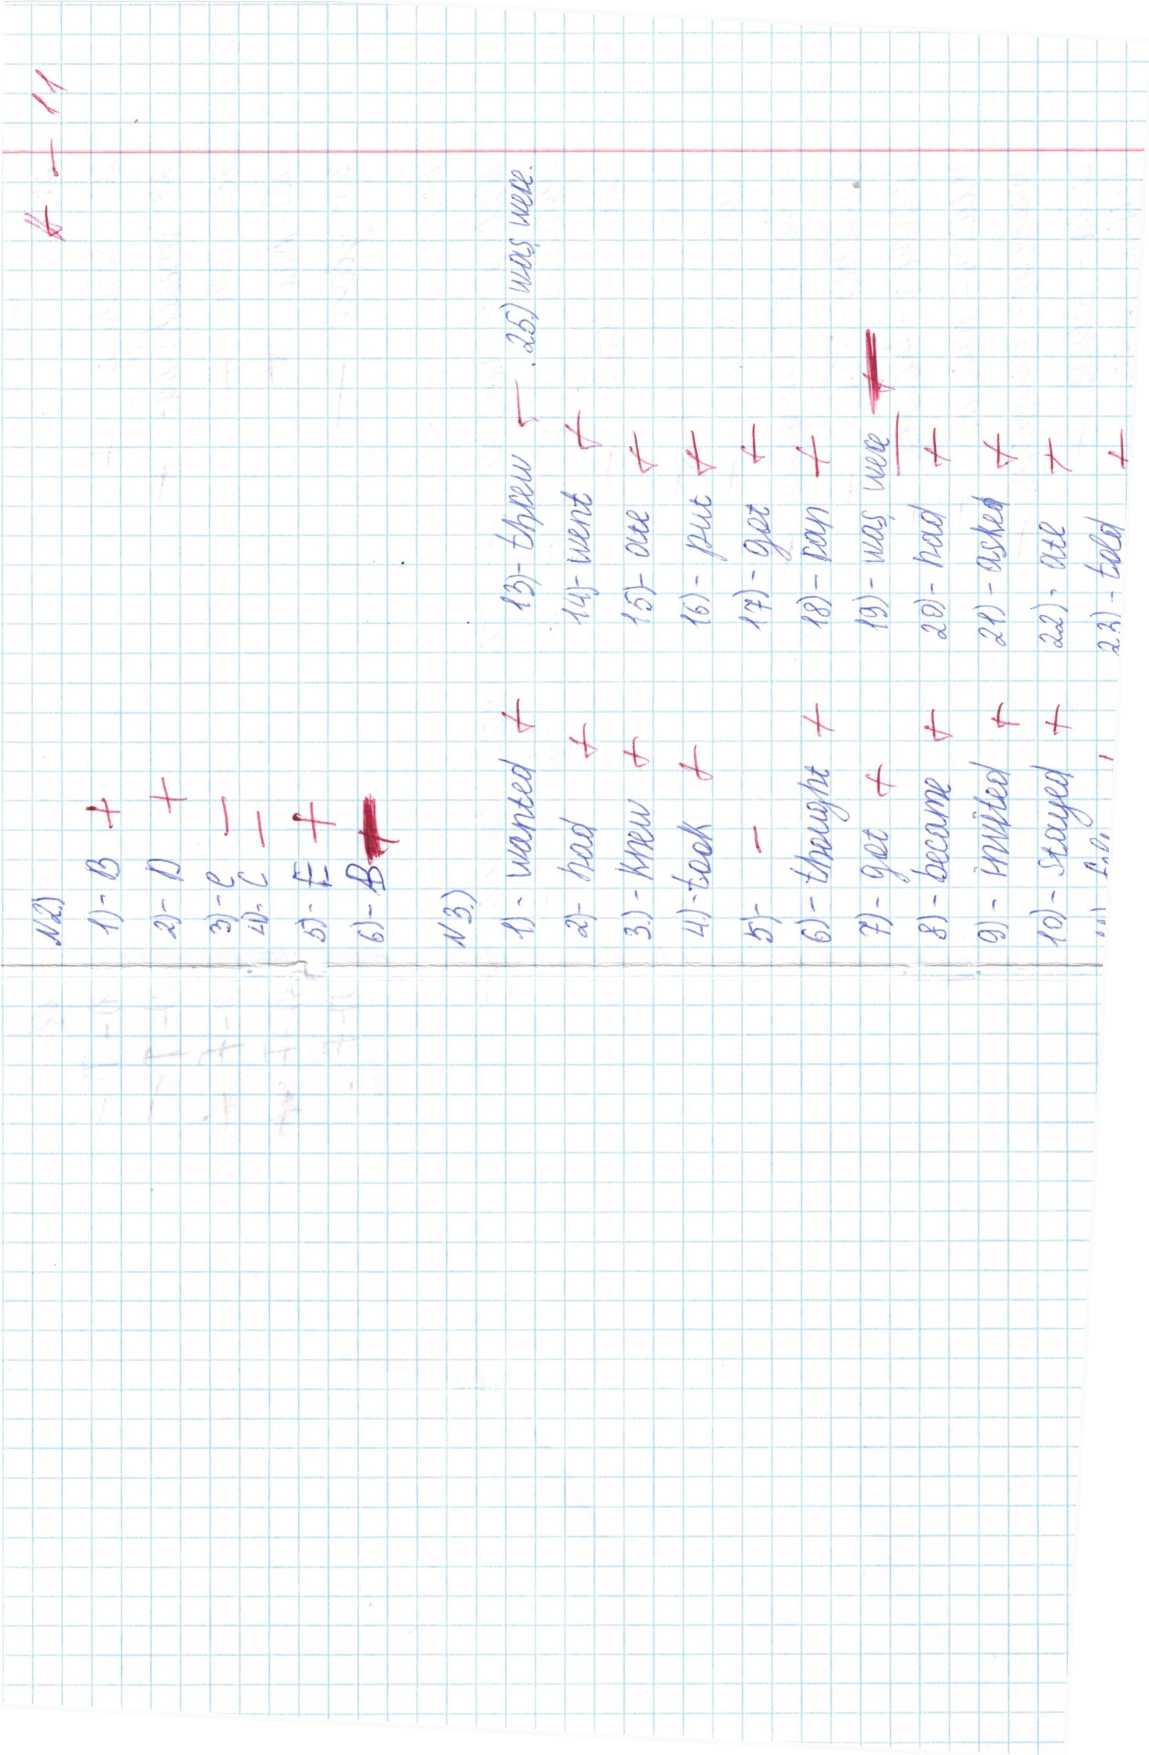 + - 11
N2)
1)- B +
2)- D +
3)- C -
4)- C -
5)- E +
6)- B +
N3.)
1)- wanted +
2)- had +
3)- knew +
4)- took +
5)- -
6)- thought +
7)- got +
8)- became +
9)- invited +
10)- stayed +
13)- threw -
14)- went +
15)- ate +
16)- put +
17)- got +
18)- ran +
19)- was, were +
20)- had +
21)- asked +
22)- ate +
23)- told +
25) was, were.